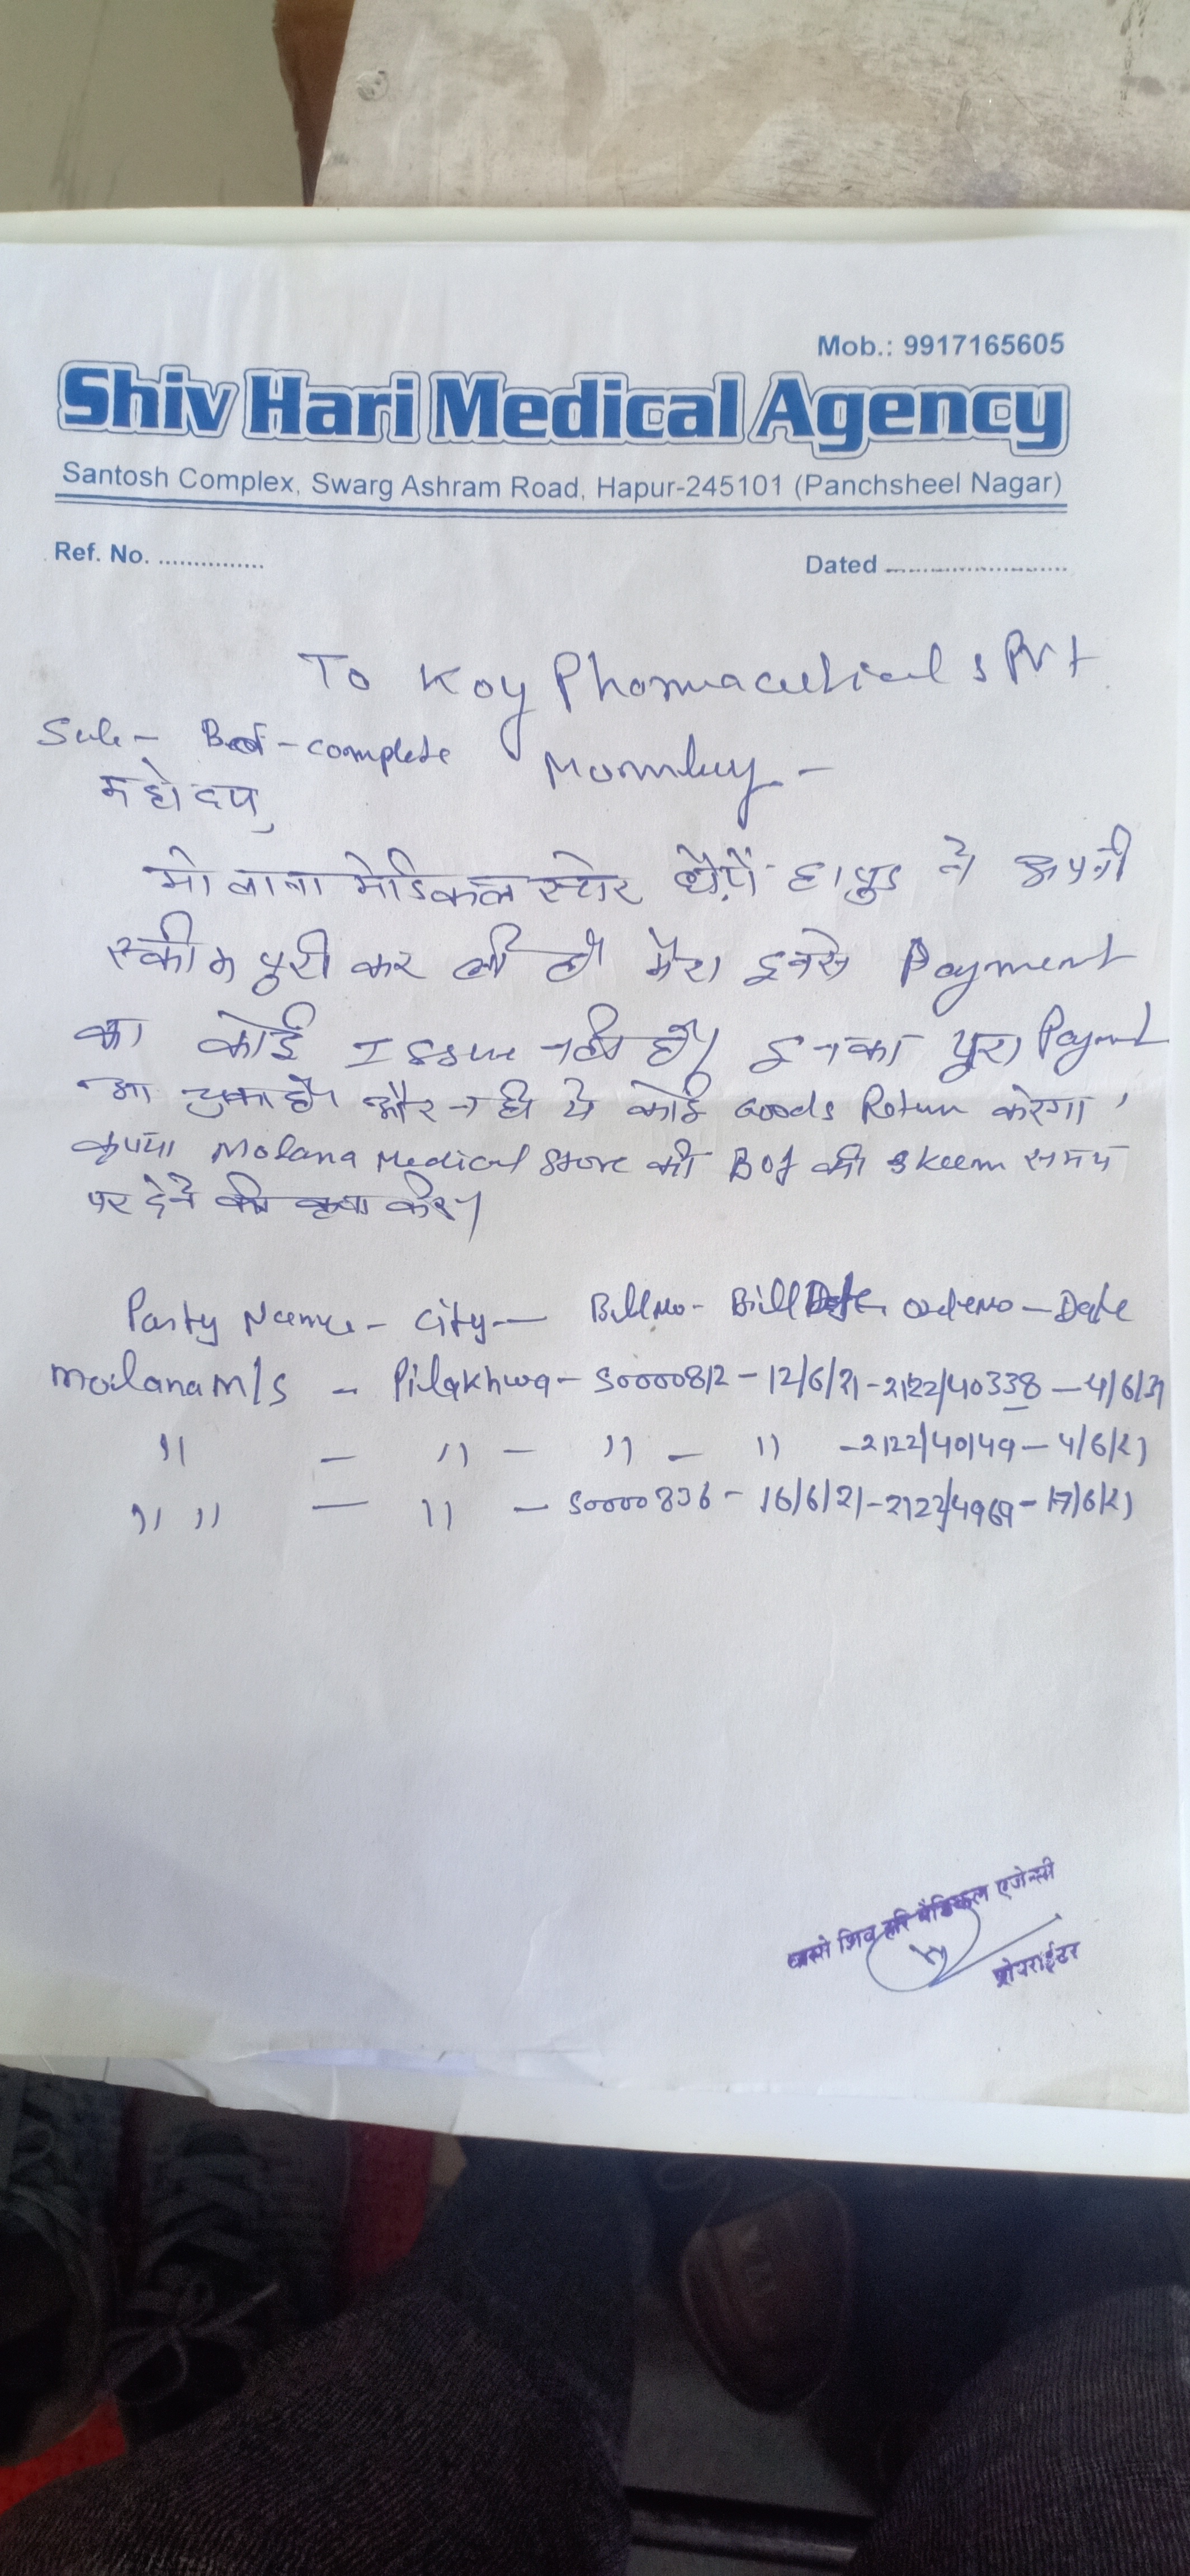 Mob.: 9917165605
Shiv Hari Medical Agency
Santosh Complex, Swarg Ashram Road, Hapur-245101 (Panchsheel Nagar)
Ref. No. ............... Dated ........................
To Koy Phormaceutical s Pvt
Sub- - complete Mommbuy -
महोदय,
मोलाना मेडिकल स्टोर हापुड ने अपनी
स्कीम पुरी कर ली है मेरा इनसे Payment
का कोई Issue नही है। इनका पुरा Paymt
आ चुका है और न ही ये कोई Goods Return करेगा,
कृपया Molana Medical Store की Bof की Skeem समय
पर देने की कृपा करे।
Party Name - City - Bill No - Bill Date OrderNo - Date
Molana M/S - Pilakhwa - S0000812 - 12/6/21 - 2122/40338 - 4/6/21
" - " - " - " - 2122/40149 - 4/6/21
" " - " - S0000836 - 16/6/21 - 2122/4969 - 17/6/21
शिव हरि मैडिकल एजेन्सी
प्रोपराईटर